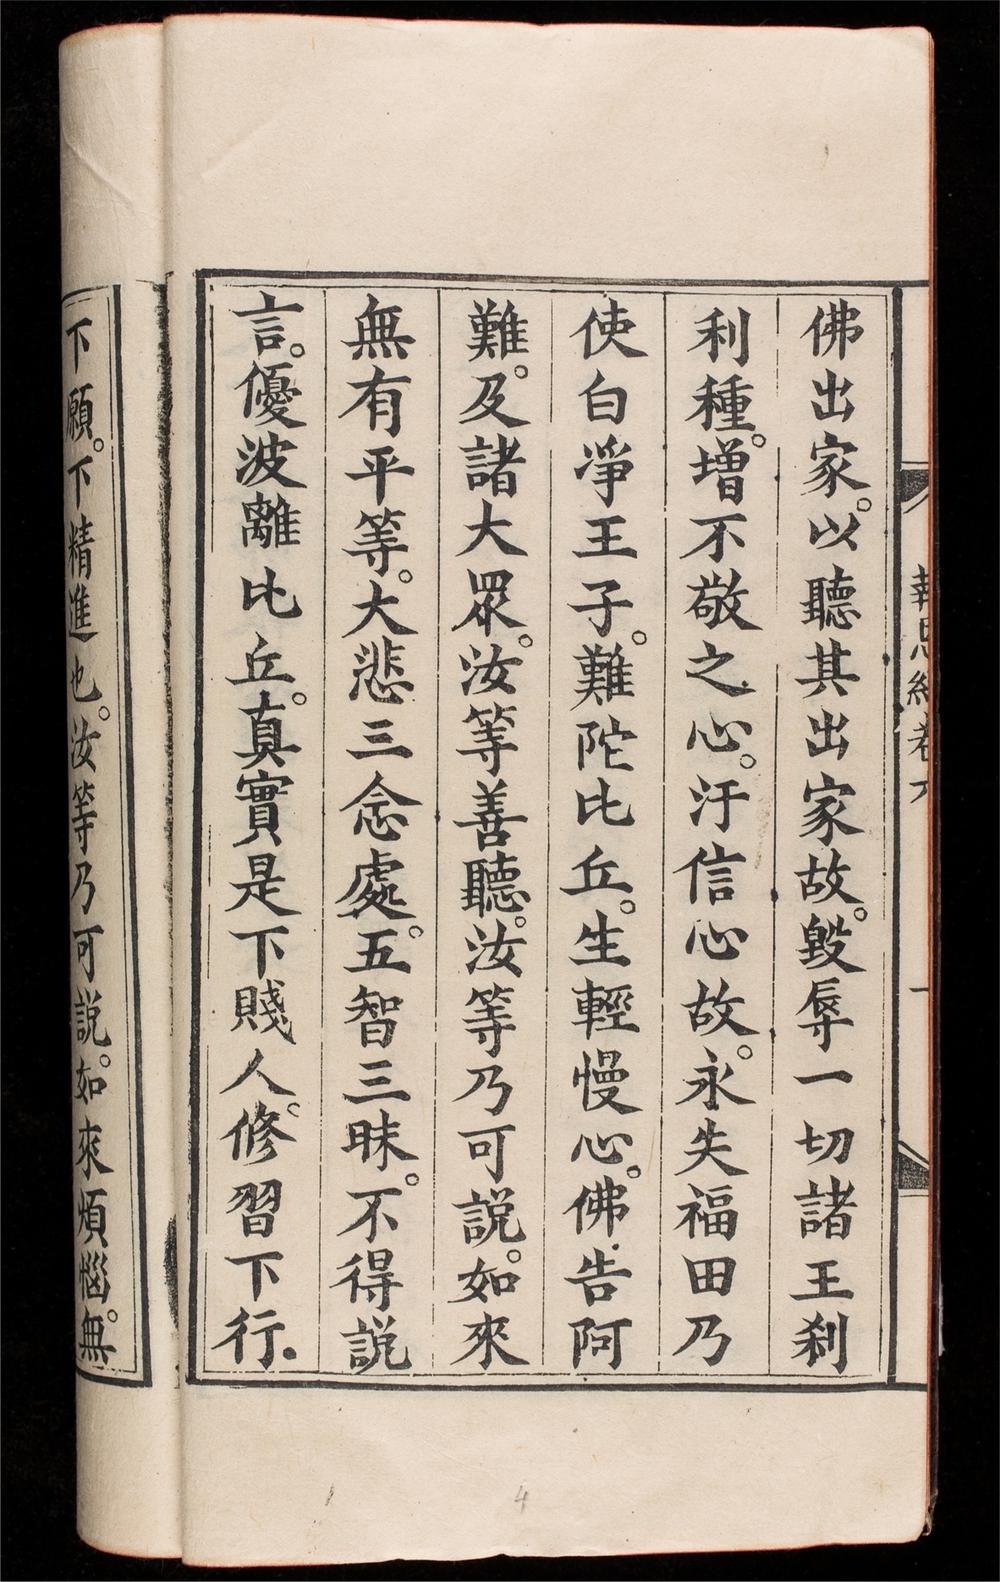 報恩經卷六 一
佛出家。以聽其出家故。毀辱一切諸王刹
利種。增不敬之心。汙信心故。永失福田乃
使白淨王子。難陀比丘。生輕慢心。佛告阿
難。及諸大眾。汝等善聽。汝等乃可說。如來
無有平等。大悲三念處。五智三昧。不得説
言。優波離比丘。真實是下賤人。修習下行.
下願。下精進也。汝等乃可説。如來煩惱。無
4